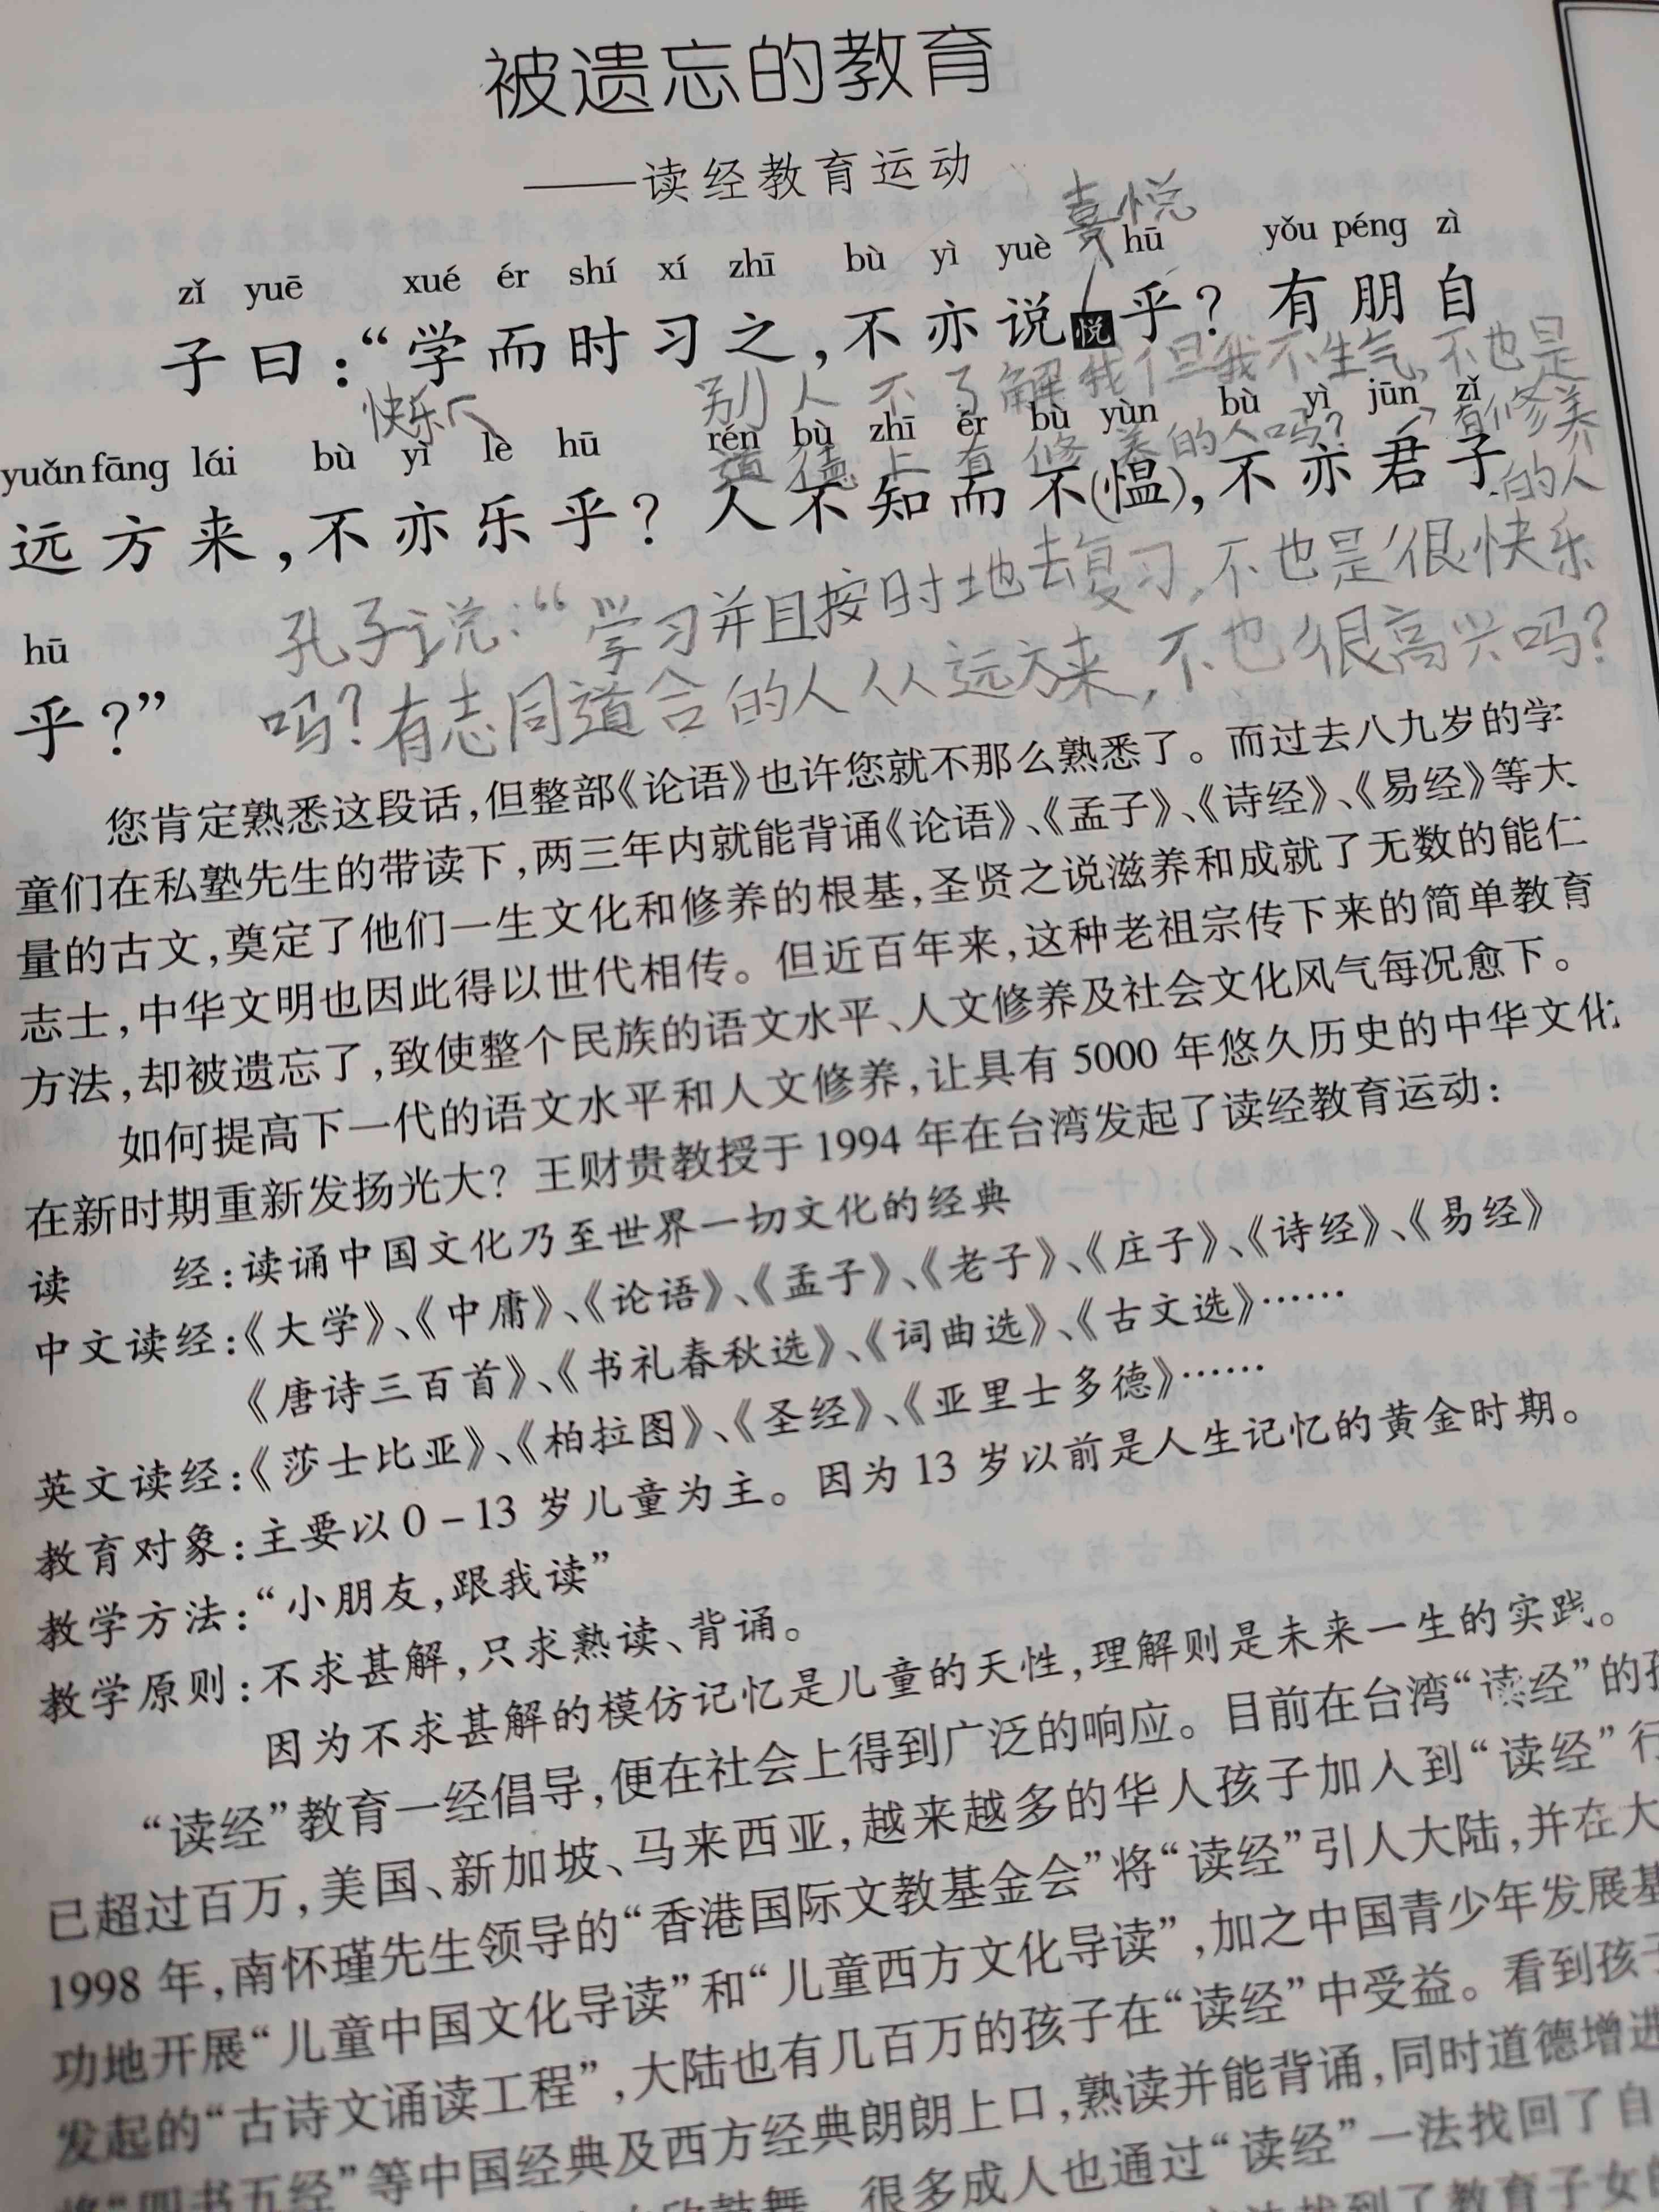 被遗忘的教育
——读经教育运动
喜悦
zǐ yuē xué ér shí xí zhī bù yì yuè hū yǒu péng zì
子曰：“学而时习之，不亦说悦乎？有朋自
快乐
别人不了解我但我不生气，不也是
yuǎn fāng lái bù yì lè hū rén bù zhī ér bù yùn bù yì jūn zǐ
道德上有修养的人吗？
有修养
的人
远方来，不亦乐乎？人不知而不(愠)，不亦君子
hū
乎？”
孔子说：“学习并且按时地去复习，不也是很快乐
吗？有志同道合的人从远方来，不也很高兴吗？
您肯定熟悉这段话，但整部《论语》也许您就不那么熟悉了。而过去八九岁的学
童们在私塾先生的带读下，两三年内就能背诵《论语》、《孟子》、《诗经》、《易经》等大
量的古文，奠定了他们一生文化和修养的根基，圣贤之说滋养和成就了无数的能仁
志士，中华文明也因此得以世代相传。但近百年来，这种老祖宗传下来的简单教育
方法，却被遗忘了，致使整个民族的语文水平、人文修养及社会文化风气每况愈下。
如何提高下一代的语文水平和人文修养，让具有5000年悠久历史的中华文化
在新时期重新发扬光大？王财贵教授于1994年在台湾发起了读经教育运动：
读 经：读诵中国文化乃至世界一切文化的经典
中文读经：《大学》、《中庸》、《论语》、《孟子》、《老子》、《庄子》、《诗经》、《易经》
《唐诗三百首》、《书礼春秋选》、《词曲选》、《古文选》……
英文读经：《莎士比亚》、《柏拉图》、《圣经》、《亚里士多德》……
教育对象：主要以0－13岁儿童为主。因为13岁以前是人生记忆的黄金时期。
教学方法：“小朋友，跟我读”
教学原则：不求甚解，只求熟读、背诵。
因为不求甚解的模仿记忆是儿童的天性，理解则是未来一生的实践。
“读经”教育一经倡导，便在社会上得到广泛的响应。目前在台湾“读经”的孩
已超过百万，美国、新加坡、马来西亚，越来越多的华人孩子加人到“读经”行
1998年，南怀瑾先生领导的“香港国际文教基金会”将“读经”引人大陆，并在大
功地开展“儿童中国文化导读”和“儿童西方文化导读”，加之中国青少年发展基
发起的“古诗文诵读工程”，大陆也有几百万的孩子在“读经”中受益。看到孩子
将“四书五经”等中国经典及西方经典朗朗上口，熟读并能背诵，同时道德增进
欣鼓舞 很多成人也通过“读经”一法找回了自
找到了教育子女的